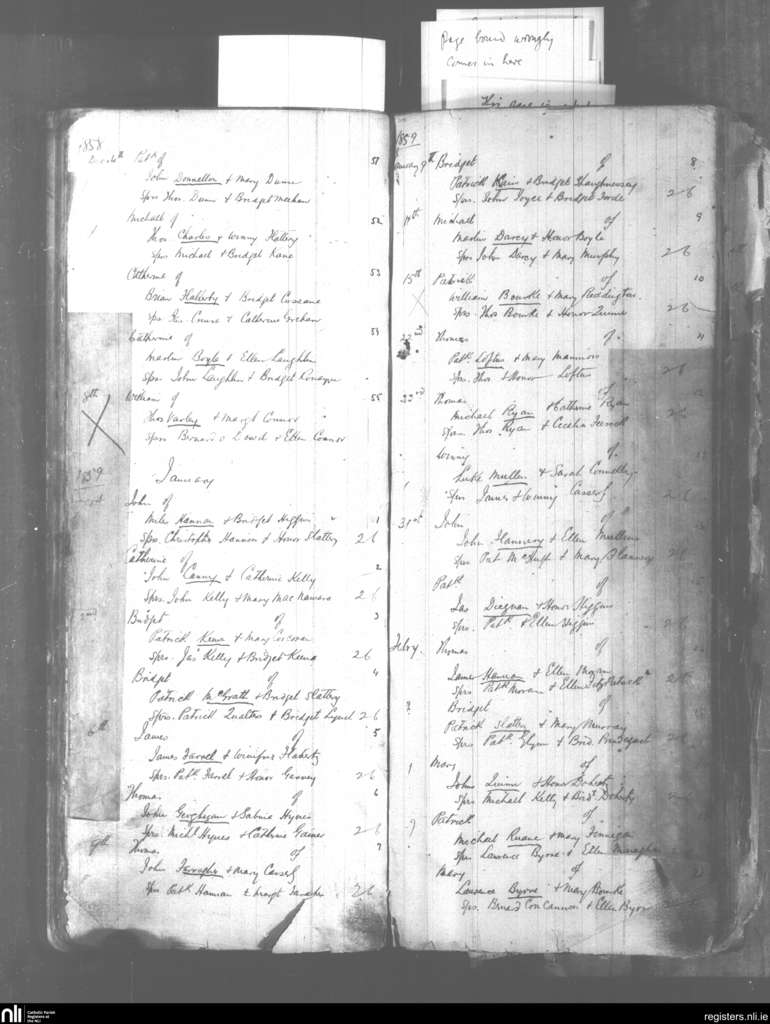 Page bound wrongly
comes in here
This page is
1858
Patk of 51
John Donnellan & Mary Dunne
Sprs Thos Dunn & Bridget Meehan
Michael of 52
Thos Charles & Winny Slattery
Sprs Michael & Bridget Kane
Catherine of 53
Brian Flaherty & Bridget Cuseane
Sprs & Catherine
Catherine of
Martin Boyle & Ellen Laughlin
Sprs John Laughlin & Bridget
8th William of 55
Thos Varley & Margt Connor
Sprs Bernard & Ellen Connor
1859
January
John of
Miles Hannon & Bridget Higgins 1
Sprs. Christopher Hannon & Honor Slattery 2 6
Catherine of
John Canny & Catherine Kelly 2
Sprs. John Kelly & Mary MacNamara 2 6
2nd Bridget of 3
Patrick & Mary Corcoran
Sprs. Jas Kelly & Bridget 2 6
Bridget of 4
Patrick McGrath & Bridget Slattery
Sprs. Patrick Qualter & Bridget Lynch 2 6
6th James of 5
James Farrell & Winifred Flaherty
Sprs. Patk Farrell & Honor 2 6
Thomas of 6
John Geoghegan & Sabina Hynes
Sprs. Michl Hynes & Catherine 2 6
9th Thomas of 7
John Farragher & Mary
Sprs Patk Hannan & Margt 2 6
1859
January 9th Bridget of 8
Patrick & Bridget Shaughnessey
Sprs. John Joyce & Bridget Forde 2-6
11th Michael of 9
Martin Darcy & Honor Boyle
Sprs John Darcy & Mary Murphy 2-6
15th Patrick of 10
William Bourke & Mary Reddington
Sprs. Thos Bourke & Honor Quinn 2-6
Thomas of 11
Patk Loftus & Mary Mannion
Sprs. Thos & Honor Loftus 2-6
22nd Thomas of
Michael Ryan & Catherine Ryan
Sprs Thos Ryan & Cecelia 2-6
Winny of
Luke Mullen & Sarah Connelly
Sprs James & Winny
31st John of
John Flannery & Ellen Mullen
Sprs Pat McHugh & Mary Flannery
Patk of
Jas Diegnan & Honor Higgins
Sprs. Patk & Ellen Higgins
Feby. Thomas of
James Hannan & Ellen Moran
Sprs Patk Moran & Ellen Fitzpatrick
Bridget of
Patrick Slattery & Mary Murray
Sprs Patk Glynn & Brid Prendergast
Mary of
John Quinn & Honor Doherty
Sprs Michael Kelly & Birdt Doherty
Patrick of
Michael Ruane & Mary Finnegan
Sprs Laurence Byrne & Ellen
Mary of
Laurence Byrne & Mary Bourke
Sprs. Bernard Concannon & Ellen Byrne
nli
Catholic Parish
Registers at
the NLI
registers.nli.ie